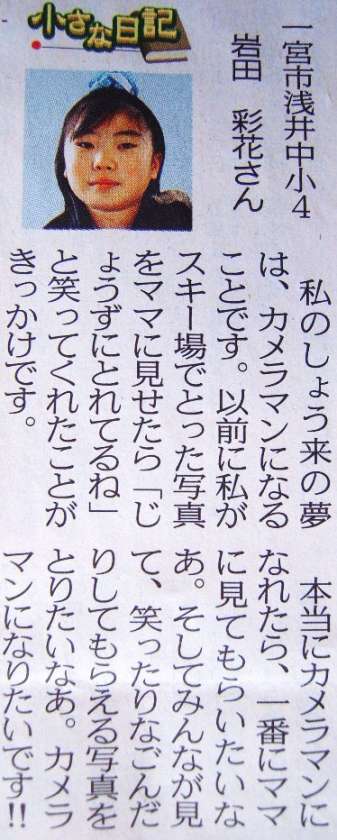 小さな日記
一宮市浅井中小4
岩田　彩花さん
私のしょう来の夢
は、カメラマンになる
ことです。以前に私が
スキー場でとった写真
をママに見せたら「じ
ょうずにとれてるね」
と笑ってくれたことが
きっかけです。
本当にカメラマンに
なれたら、一番にママ
に見てもらいたいな
あ。そしてみんなが見
て、笑ったりなごんだ
りしてもらえる写真を
とりたいなあ。カメラ
マンになりたいです!!